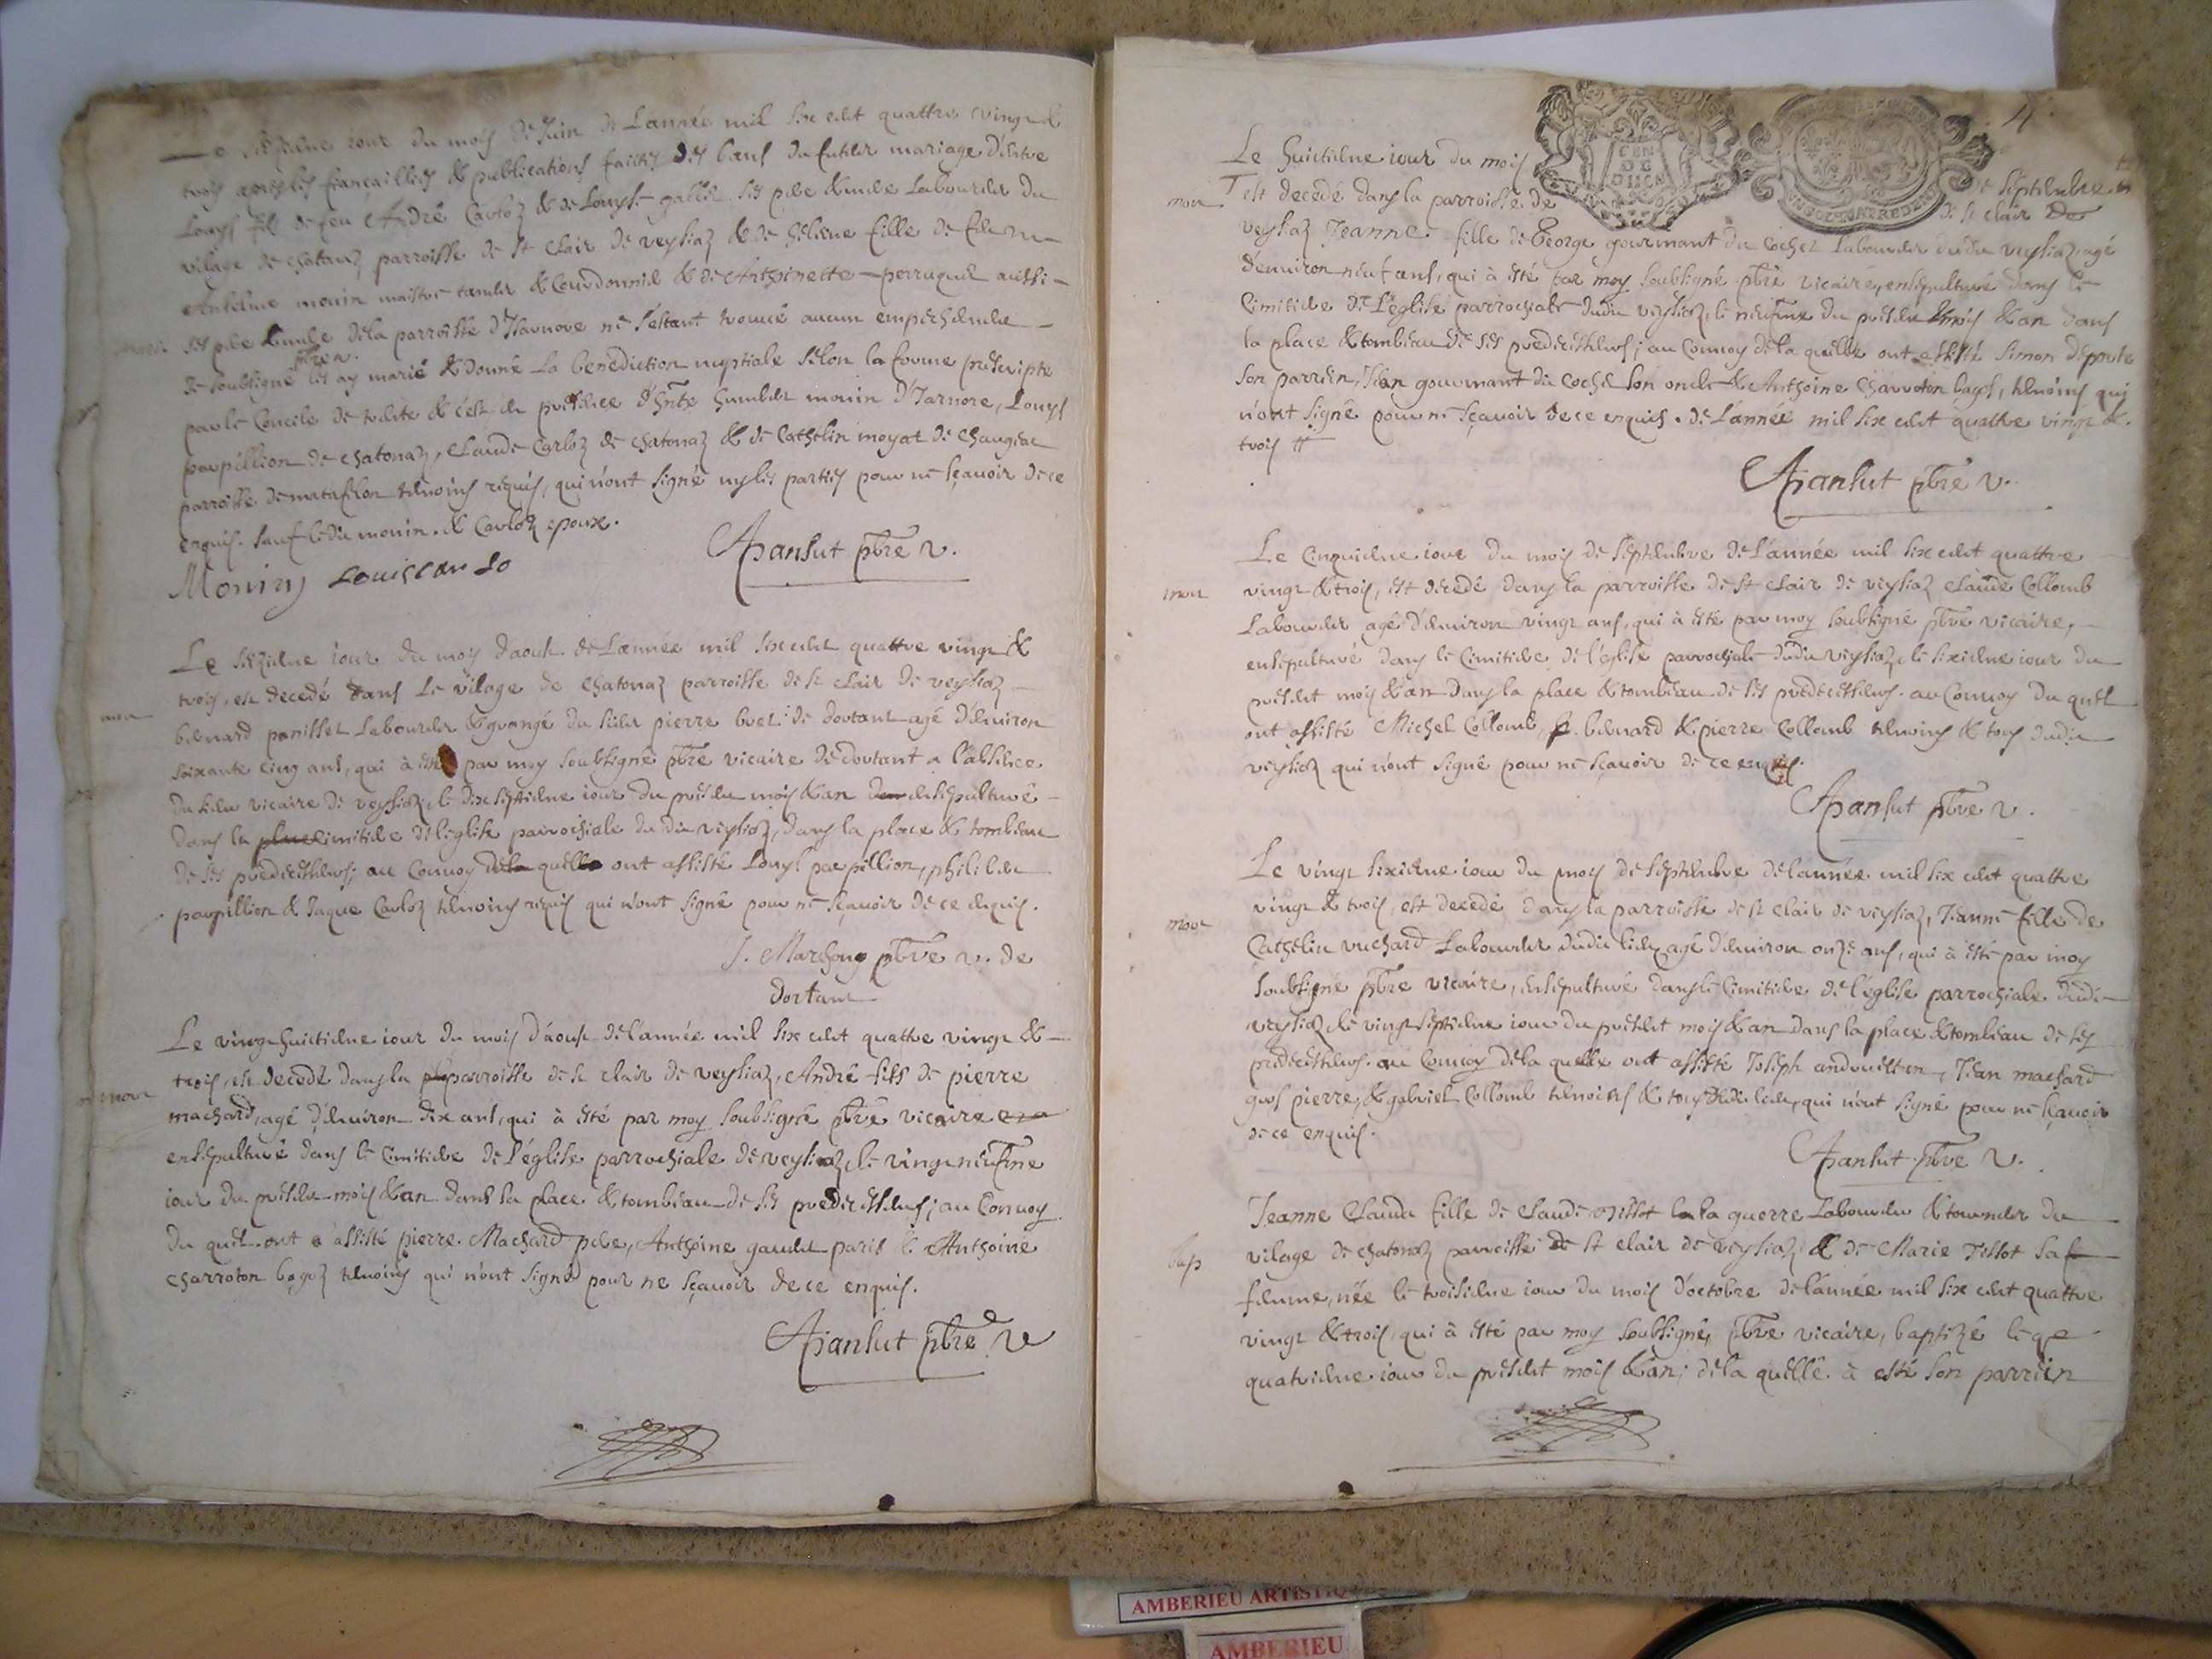 Le seizieme iour du mois de Juin de L'année mil six cent quattre vingt &
trois apres les fiançailles & publications faictes des bans du futur mariage d'entre
Louys fils de feu André Carloz & de Louyse gallet ses pere & mere Laboureur du
vilage de chatonaz parroisse de st clair de veysiaz & de helene fille de feu
Anthelme monin maistre taneur & Courdonnié & de Anthoinette perruquet aussi
ses pere & mere de la parroisse d'Isarnore ne s'estant trouvé aucun empechement
Je soubsigné pbre v. les ay marié & donné La benediction nuptiale selon la forme prescripte
par le Concile de trente & c'est en presence d'hnte humbert monin d'Isarnore, Louys
parpillion de chatonaz, claude Carloz de chatonaz & de Cathelin moyat de changeat
parroisse de matafelon temoins requis, qui n'ont signé ny les parties pour ne sçavoir de ce
enquis. sauf ledit monin & Carloz epoux.
Monin Louis carlo
Apansut pbre v.
Le seizieme iour du moys d'aoust de L'année mil six cent quattre vingt &
trois, est decedé dans le vilage de chatonaz parroisse de st clair de veysiaz
mor
bernard panisset Laboureur & grangé du sieur pierre buet de dortant agé d'environ
soixante cinq ans, qui à esté par moy soubsigné pbre vicaire de dortant a l'absence
du sieur vicaire de veysiaz, le dix septieme iour du present mois & an ensepulturé
dans la place cimitiere de l'eglise parrochiale du dit veysiaz, dans la place & tombeau
de ses predecesseurs; au Convoy de la quelle ont assisté Louys parpillion, philibert
parpillion & Jaque Carloz temoins requis qui n'ont signé pour ne sçavoir de ce enquis.
J. Marchong pbre v. de
dortant
Le vingt huictieme iour du mois d'aoust de l'année mil six cent quattre vingt &
trois, est decedé dans la parroisse de st clair de veysiaz, André fils de pierre
mor
machard, agé d'environ dix ans, qui à esté par moy soubsigné pbre vicaire
ensepulturé dans le Cimitiere de l'église parrochiale de veysiaz, le vingt neufme
iour du present mois & an dans la place & tombeau de ses predecesseurs; au Convoy
du quel ont assisté pierre Machard pere, Anthoine gaudet paris & Anthoine
charroton bagoz temoins qui n'ont signé pour ne sçavoir de ce enquis.
Apansut pbre v
4
Le huictieme iour du mois de septembre
mor est decedé dans la parroisse de st clair de
veysiaz Jeanne fille de George gourmant du Cochet Laboureur dudit veysiaz, agé
d'environ neuf ans, qui à esté par moy soubsigné pbre vicaire, ensepulturé dans le
Cimitiere de l'église parrochiale dudit veysiaz, le neufme du present mois & an dans
la place & tombeau de ses predecesseurs; au Convoy de la quelle ont assisté simon
son parrien, Jean gourmant du cochet son oncle & Anthoine charroton bagoz, temoins qui
n'ont signé pour ne sçavoir de ce enquis. de L'année mil six cent quattre vingt &
trois
Apansut pbre v.
Le Cinquieme iour du mois de septembre de L'année mil six cent quattre
mor
vingt & trois, est decedé dans la parroisse de st clair de veysiaz claude Collomb
Laboureur agé d'environ vingt ans, qui à esté par moy soubsigné pbre vicaire,
ensepulturé dans le Cimitiere de l'église parrochiale dudit veysiaz, le sixieme iour du
present mois & an dans la place & tombeau de ses predecesseurs. au Convoy du quel
ont assisté Michel Collomb, bernard & pierre Collomb temoins & tous dudit
veysiaz qui n'ont signé pour ne sçavoir de ce enquis.
Apansut pbre v.
Le vingt sixieme iour du mois de septembre de l'année mil six cent quattre
mor
vingt & trois, est decedé dans la parroisse de st clair de veysiaz, Jeanne fille de
Cathelin vuchard Laboureur dudit lieu, agé d'environ onze ans, qui à esté par moy
soubsigné pbre vicaire, ensepulturé dans le Cimitiere de l'église parrochiale dudit
veysiaz, le vingt septieme iour du present mois & an dans la place & tombeau de ses
predecesseurs. au Convoy de la quelle ont assisté Joseph andruetton, Jean machard
gros pierre, & gabriel Collomb temoins & tous dudit lieu, qui n'ont signé pour ne sçavoir
de ce enquis.
Apansut pbre v.
Jeanne claudu fille de claude missot la guerre Laboureur & tourneur du
bap
vilage de chatonaz parroisse de st clair de veysiaz & de Marie Tissot sa
femme, née le troisieme iour du mois d'octobre de l'année mil six cent quattre
vingt & trois, qui à esté par moy soubsigné, pbre vicaire, baptizé le
quatrieme iour du present mois & an; de la quelle à esté son parrien
AMBERIEU ARTISTIQ
AMBERIEU